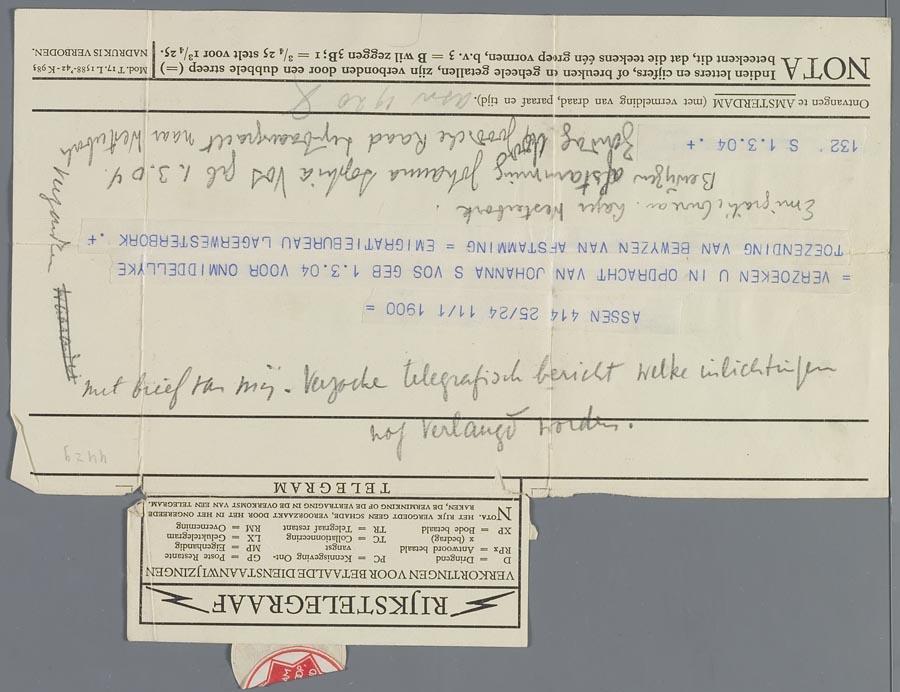 RIJKSTELEGRAAF
VERKORTINGEN VOOR BETAALDE DIENSTAANWIJZINGEN
D = Dringend PC = Kennisgeving Ont- GP = Poste Restante
RPx = Antwoord betaald vangst MP = Eigenhandig
x (bedrag) TC = Collationneering LX = Geluktelegram
XP = Bode betaald TR = Telegraaf restant RM = Overneming
NOTA. HET RIJK VERGOEDT GEEN SCHADE, VEROORZAAKT DOOR HET IN HET ONGEREEDE
RAKEN, DE VERMINKING OF DE VERTRAGING IN DE OVERKOMST VAN EEN TELEGRAM.
TELEGRAM
ASSEN 414 25/24 11/1 1900 =
= VERZOEKEN U IN OPDRACHT VAN JOHANNA S VOS GEB 1.3.04 VOOR ONMIDDELLYKE
TOEZENDING VAN BEWYZEN VAN AFSTAMMING = EMIGRATIEBUREAU LAGERWESTERBORK .+
Emigratiebureau. Lager Westerbork.
Bewijzen afstamming Johanna Sophia Vos geb 1.3.04.
132 S 1.3.04 .+
Zondag Joodsche Raad Lijnbaansgracht naar Westerbork
verzonden
met brief van mij. Verzoeke telegrafisch bericht welke inlichtingen
nog verlangd worden.
Ontvangen te AMSTERDAM (met vermelding van draad, paraaf en tijd).
asn 1920
NOTA Indien letters en cijfers, of breuken en geheele getallen, zijn verbonden door een dubbele streep (=)
beteekent dit, dat die teekens één groep vormen, b.v. 3 = B wil zeggen 3B; 1 = 3/4 25 stelt voor 1 3/4 25.
Mod. T. 17, I. 1588-'42 - K 983
NADRUK IS VERBODEN.